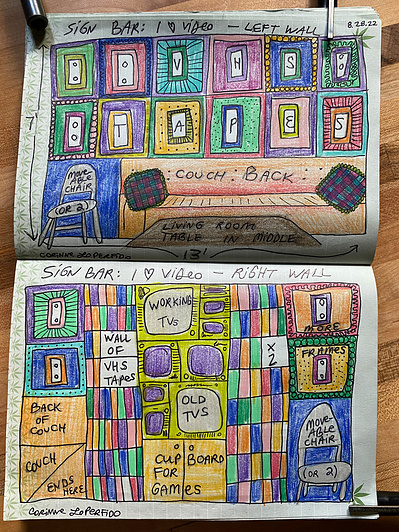 SIGN BAR: I ♡ VIDEO – LEFT WALL
8.28.22
V H S
T A P E S
7'
MOVE-
ABLE
CHAIR
(OR 2)
COUCH BACK
LIVING ROOM
TABLE IN MIDDLE
13'
CORINNE LOPERFIDO
SIGN BAR: I ♡ VIDEO – RIGHT WALL
WALL
OF
VHS
TAPES
WORKING
TVs
OLD
TVS
CUPBOARD
FOR
GAMES
X
2
MORE
FRAMES
BACK
OF
COUCH
COUCH
ENDS
HERE
MOVE-
ABLE
CHAIR
(OR 2)
CORINNE LOPERFIDO